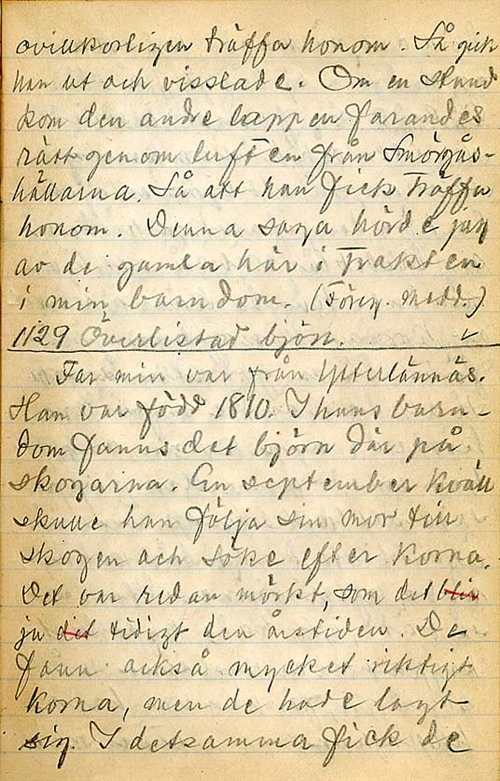 ovillkorligen träffa honom. Så gick
han ut och visslade. Om en stund
kom den andre lappen farandes
rätt genom luften från Smörgås-
hällarna. Så att han fick träffa
honom. Denna saga hörde jag
av de gamla här i trakten
i min barndom. (Föreg. medd.)
1129 Överlistad björn.
Far min var från Ytterlännäs.
Han var född 1810. I hans barn-
dom fanns det björn där på
skogarna. En september kväll
skulle han följa sin mor till
skogen och söke efter korna.
Det var redan mörkt, som det blir
ju det tidigt den årstiden. De
fann också mycket riktigt
korna, men de hade lagt
sig. I detsamma fick de